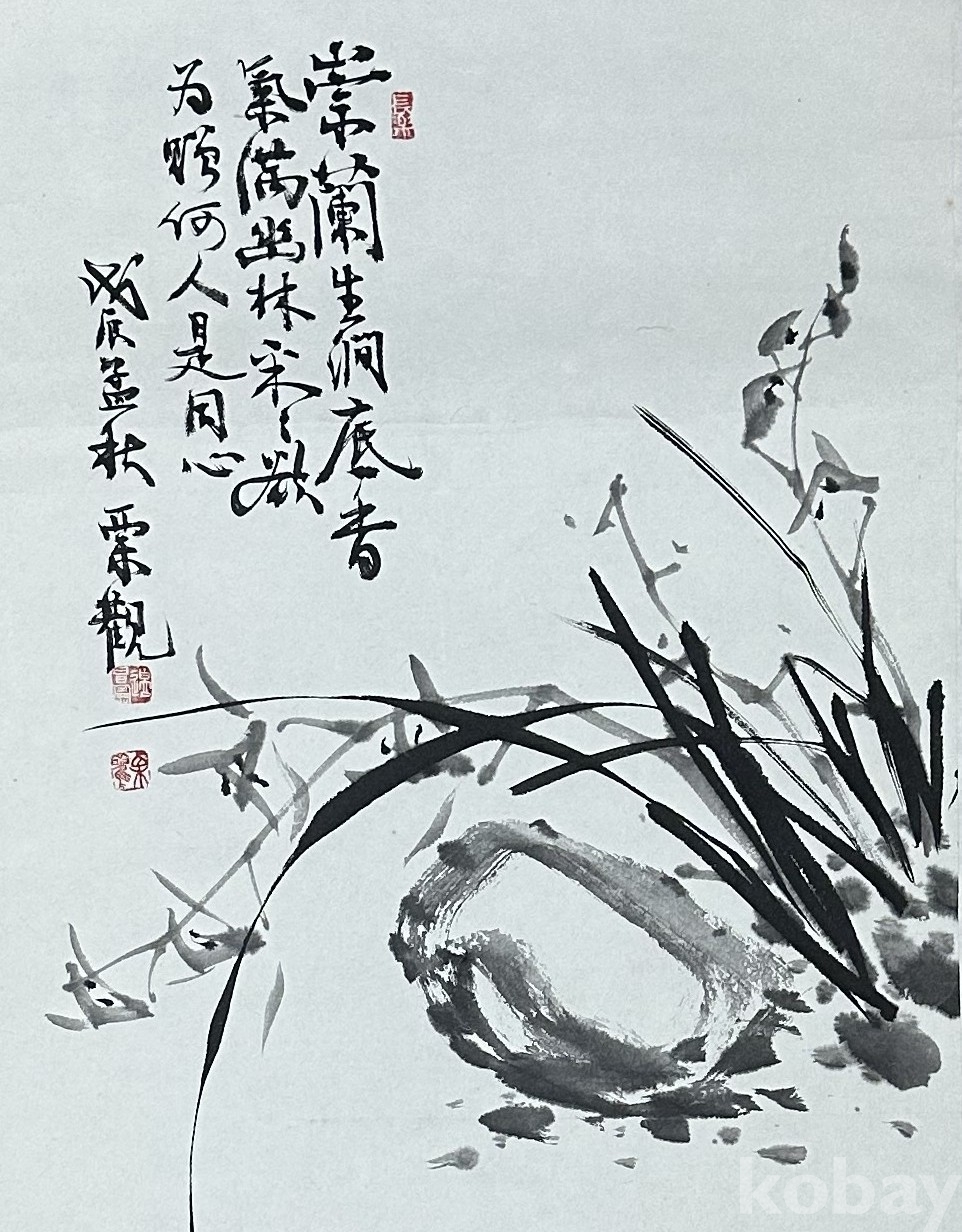 崇蘭生澗底香
氣满幽林采々欲
为贈何人是同心
戊辰孟秋 栗觀
kobay